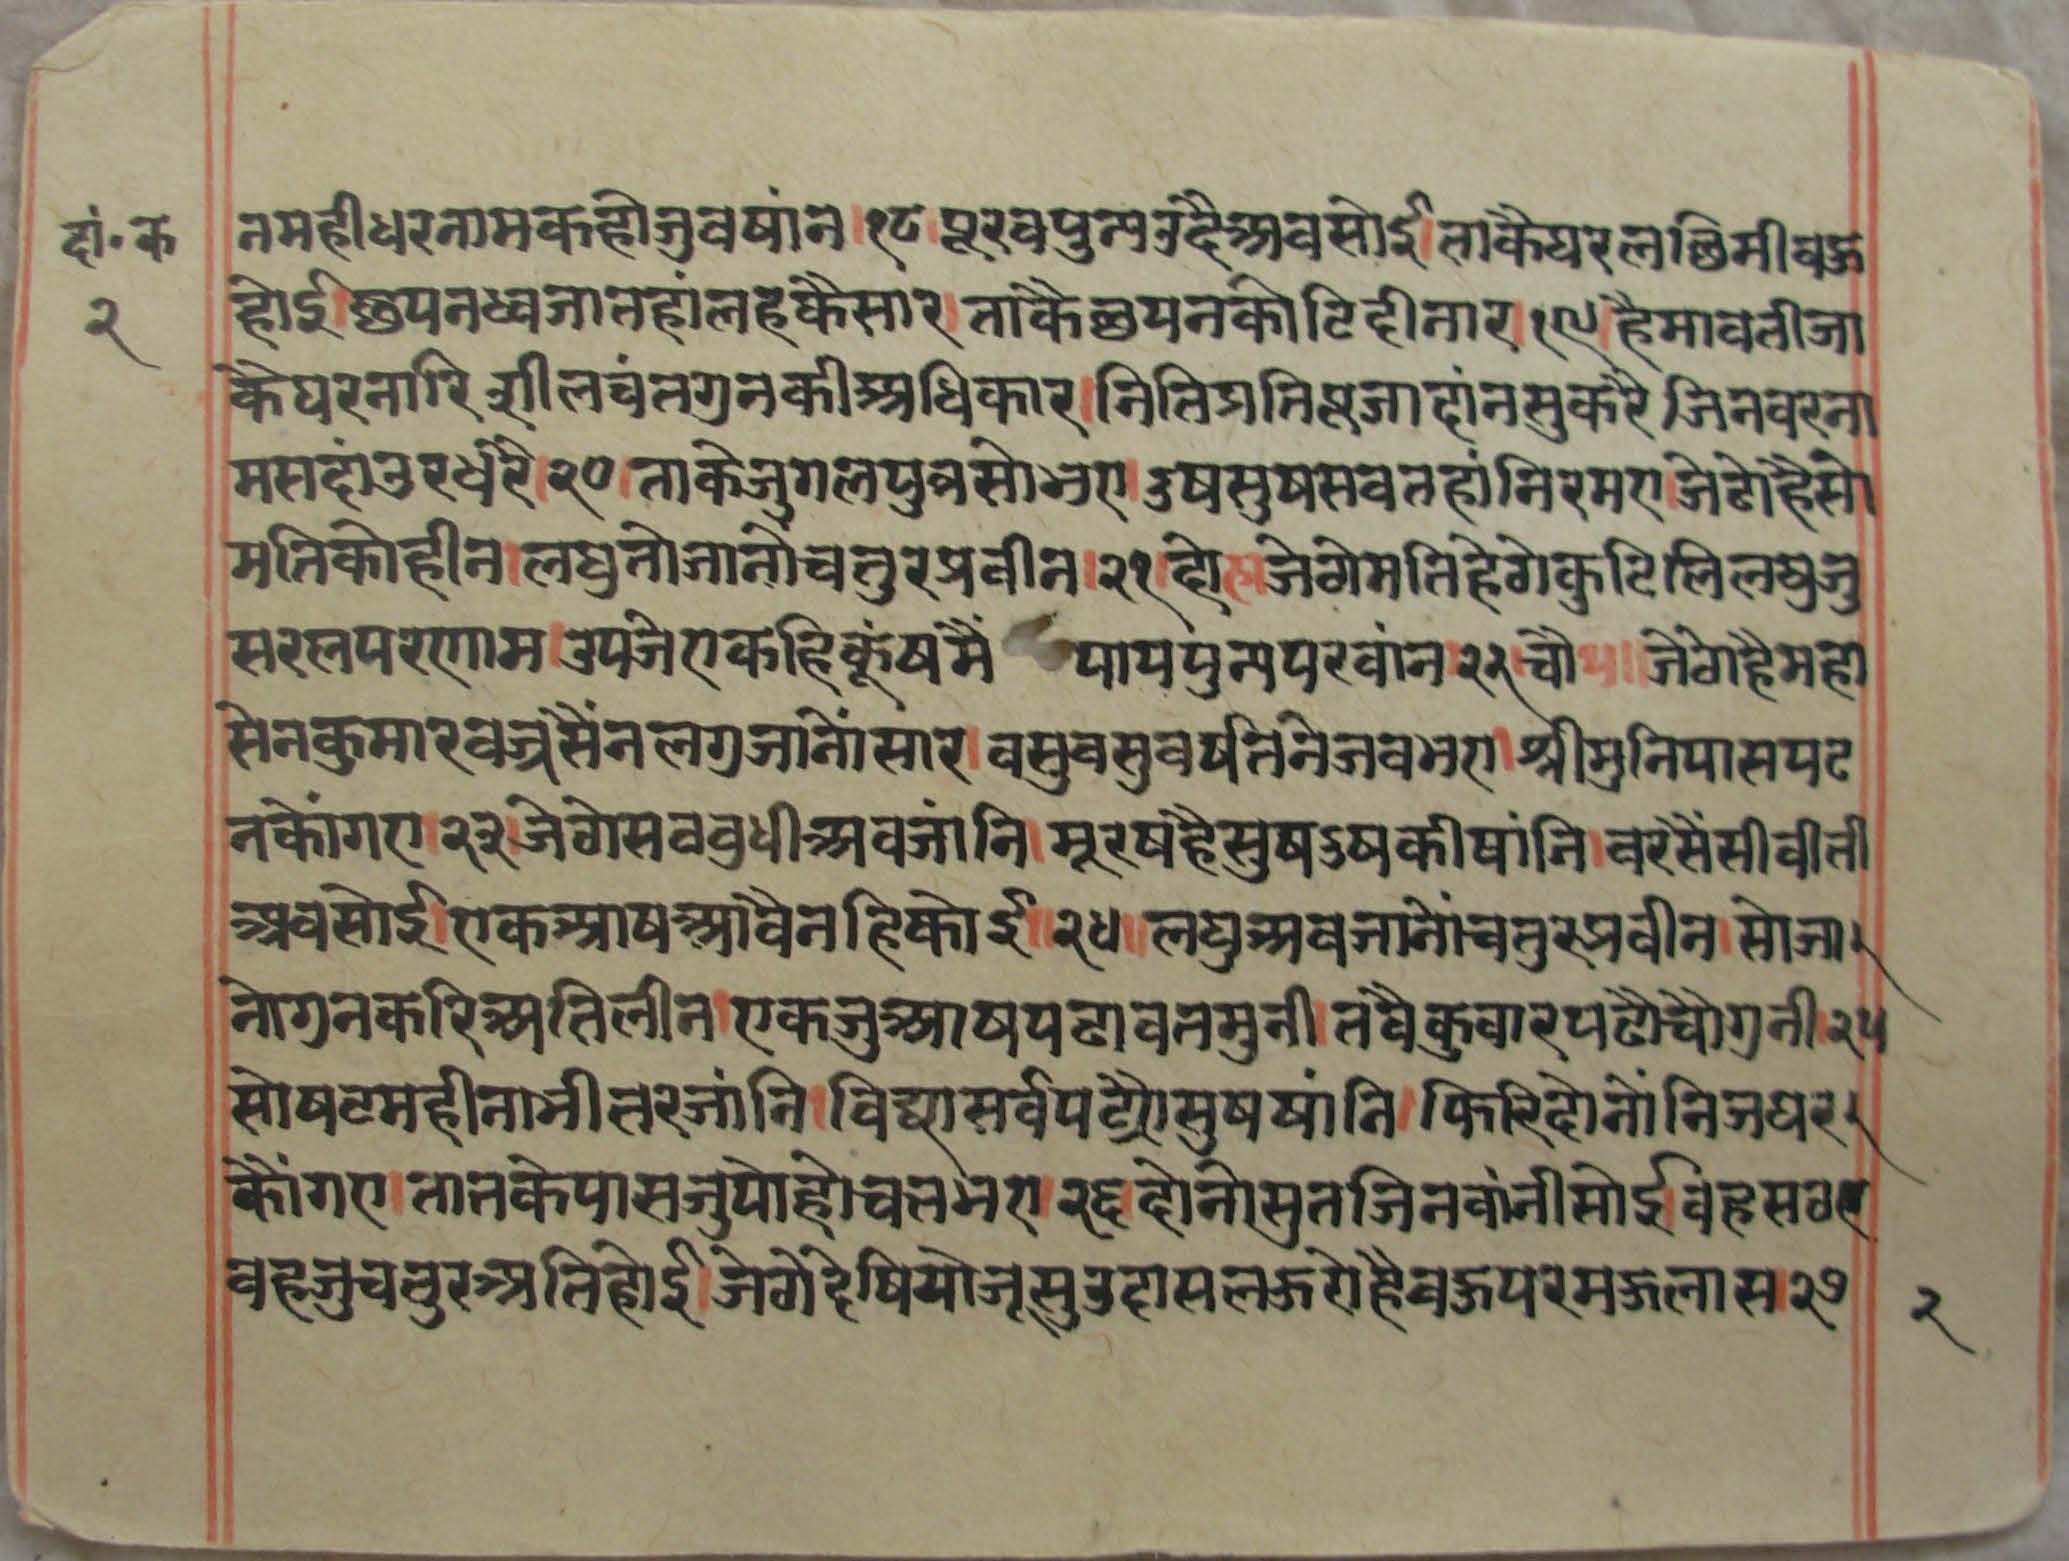 दां॰क
२
नमहीधरनामकहोजुवषांन।१८।पूरवपुन्यउदैअवसोई।ताकैघरलछिमीवऊ
होई।छपनध्वजातहांलहकैसार।ताकैछपनकोटिदीनार।१९।हैमावतीजा
कैघरनारि।शीलवंतगुनकीअधिकार।नितिप्रतिपूजादांनसुकरै।जिनवरना
मसदांउरधरै।२०।ताकेजुगलपुत्रसोभए।दुषसुषसवतहांनिरमए।जेठोहैसो
मतिकोहीन।लघुतोजानौंचतुरप्रवीन।२१।दोहा।जेठोमतिहेठोकुटिलिलघुजु
सरलपरणाम।उपजेएकहिकूंषमैं पापपुंन्यपरवांन।२२।चौप॥जेठोहैमहा
सेनकुमारवज्रसैंनलगुजानोंसार।वसुवसुवर्षतिनेजवभए।श्रीमुनिपासपट
नकोंगए।२३।जेठोसववुधीअवजांनि।मूरषहैसुषदुषकीषांनि।वरसैंसीवीती
अवसोई।एकआषआवैनहिकोई॥२४॥लघुअवजानोंचतुरप्रवीन।सोजा
नोगुनकरिअतिलीन।एकजुआषपढावतमुनी।तवैकुवारपढैचौगुनी।२५
सोषटमहीनाभीतरजांनि।विद्यासर्वपढ्योसुषषांनि।फिरिदोनोंनिजघर
कौंगए।तातकेपासजुपोहोचतभए।२६।दोनोसुतजिनवांनीसोई।वहसठ
वहजुचतुरअतिहोई।जेठोदेषियोजूसुउदासलऊरोहैवऊपरमऊलास।२७
२